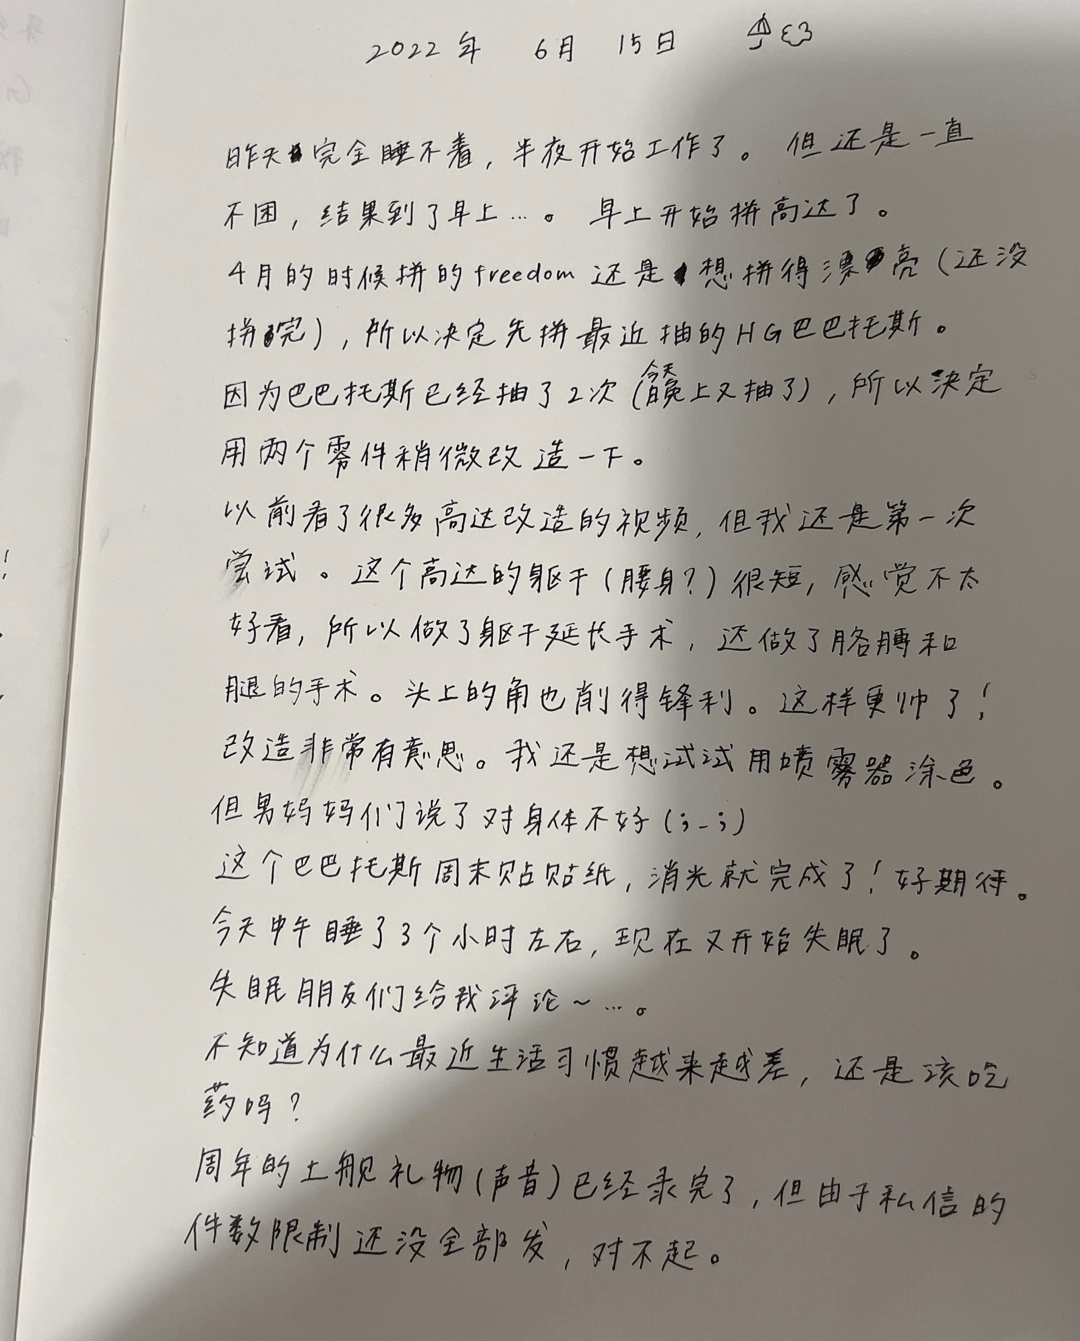 2022年 6月 15日
昨天完全睡不着，半夜开始工作了。但还是一直
不困，结果到了早上…。早上开始拼高达了。
4月的时候拼的freedom还是想拼得漂亮（还没
拼完），所以决定先拼最近抽的HG巴巴托斯。
因为巴巴托斯已经抽了2次（今天晚上又抽了），所以决定
用两个零件稍微改造一下。
以前看了很多高达改造的视频，但我还是第一次
尝试。这个高达的躯干（腰身？）很短，感觉不太
好看，所以做了躯干延长手术，还做了胳膊和
腿的手术。头上的角也削得锋利。这样更帅了！
改造非常有意思。我还是想试试用喷雾器涂色。
但男妈妈们说了对身体不好（;_;）
这个巴巴托斯周末贴贴纸，消光就完成了！好期待。
今天中午睡了3个小时左右，现在又开始失眠了。
失眠朋友们给我评论～…。
不知道为什么最近生活习惯越来越差，还是该吃
药吗？
周年的上舰礼物（声音）已经录完了，但由于私信的
件数限制还没全部发，对不起。